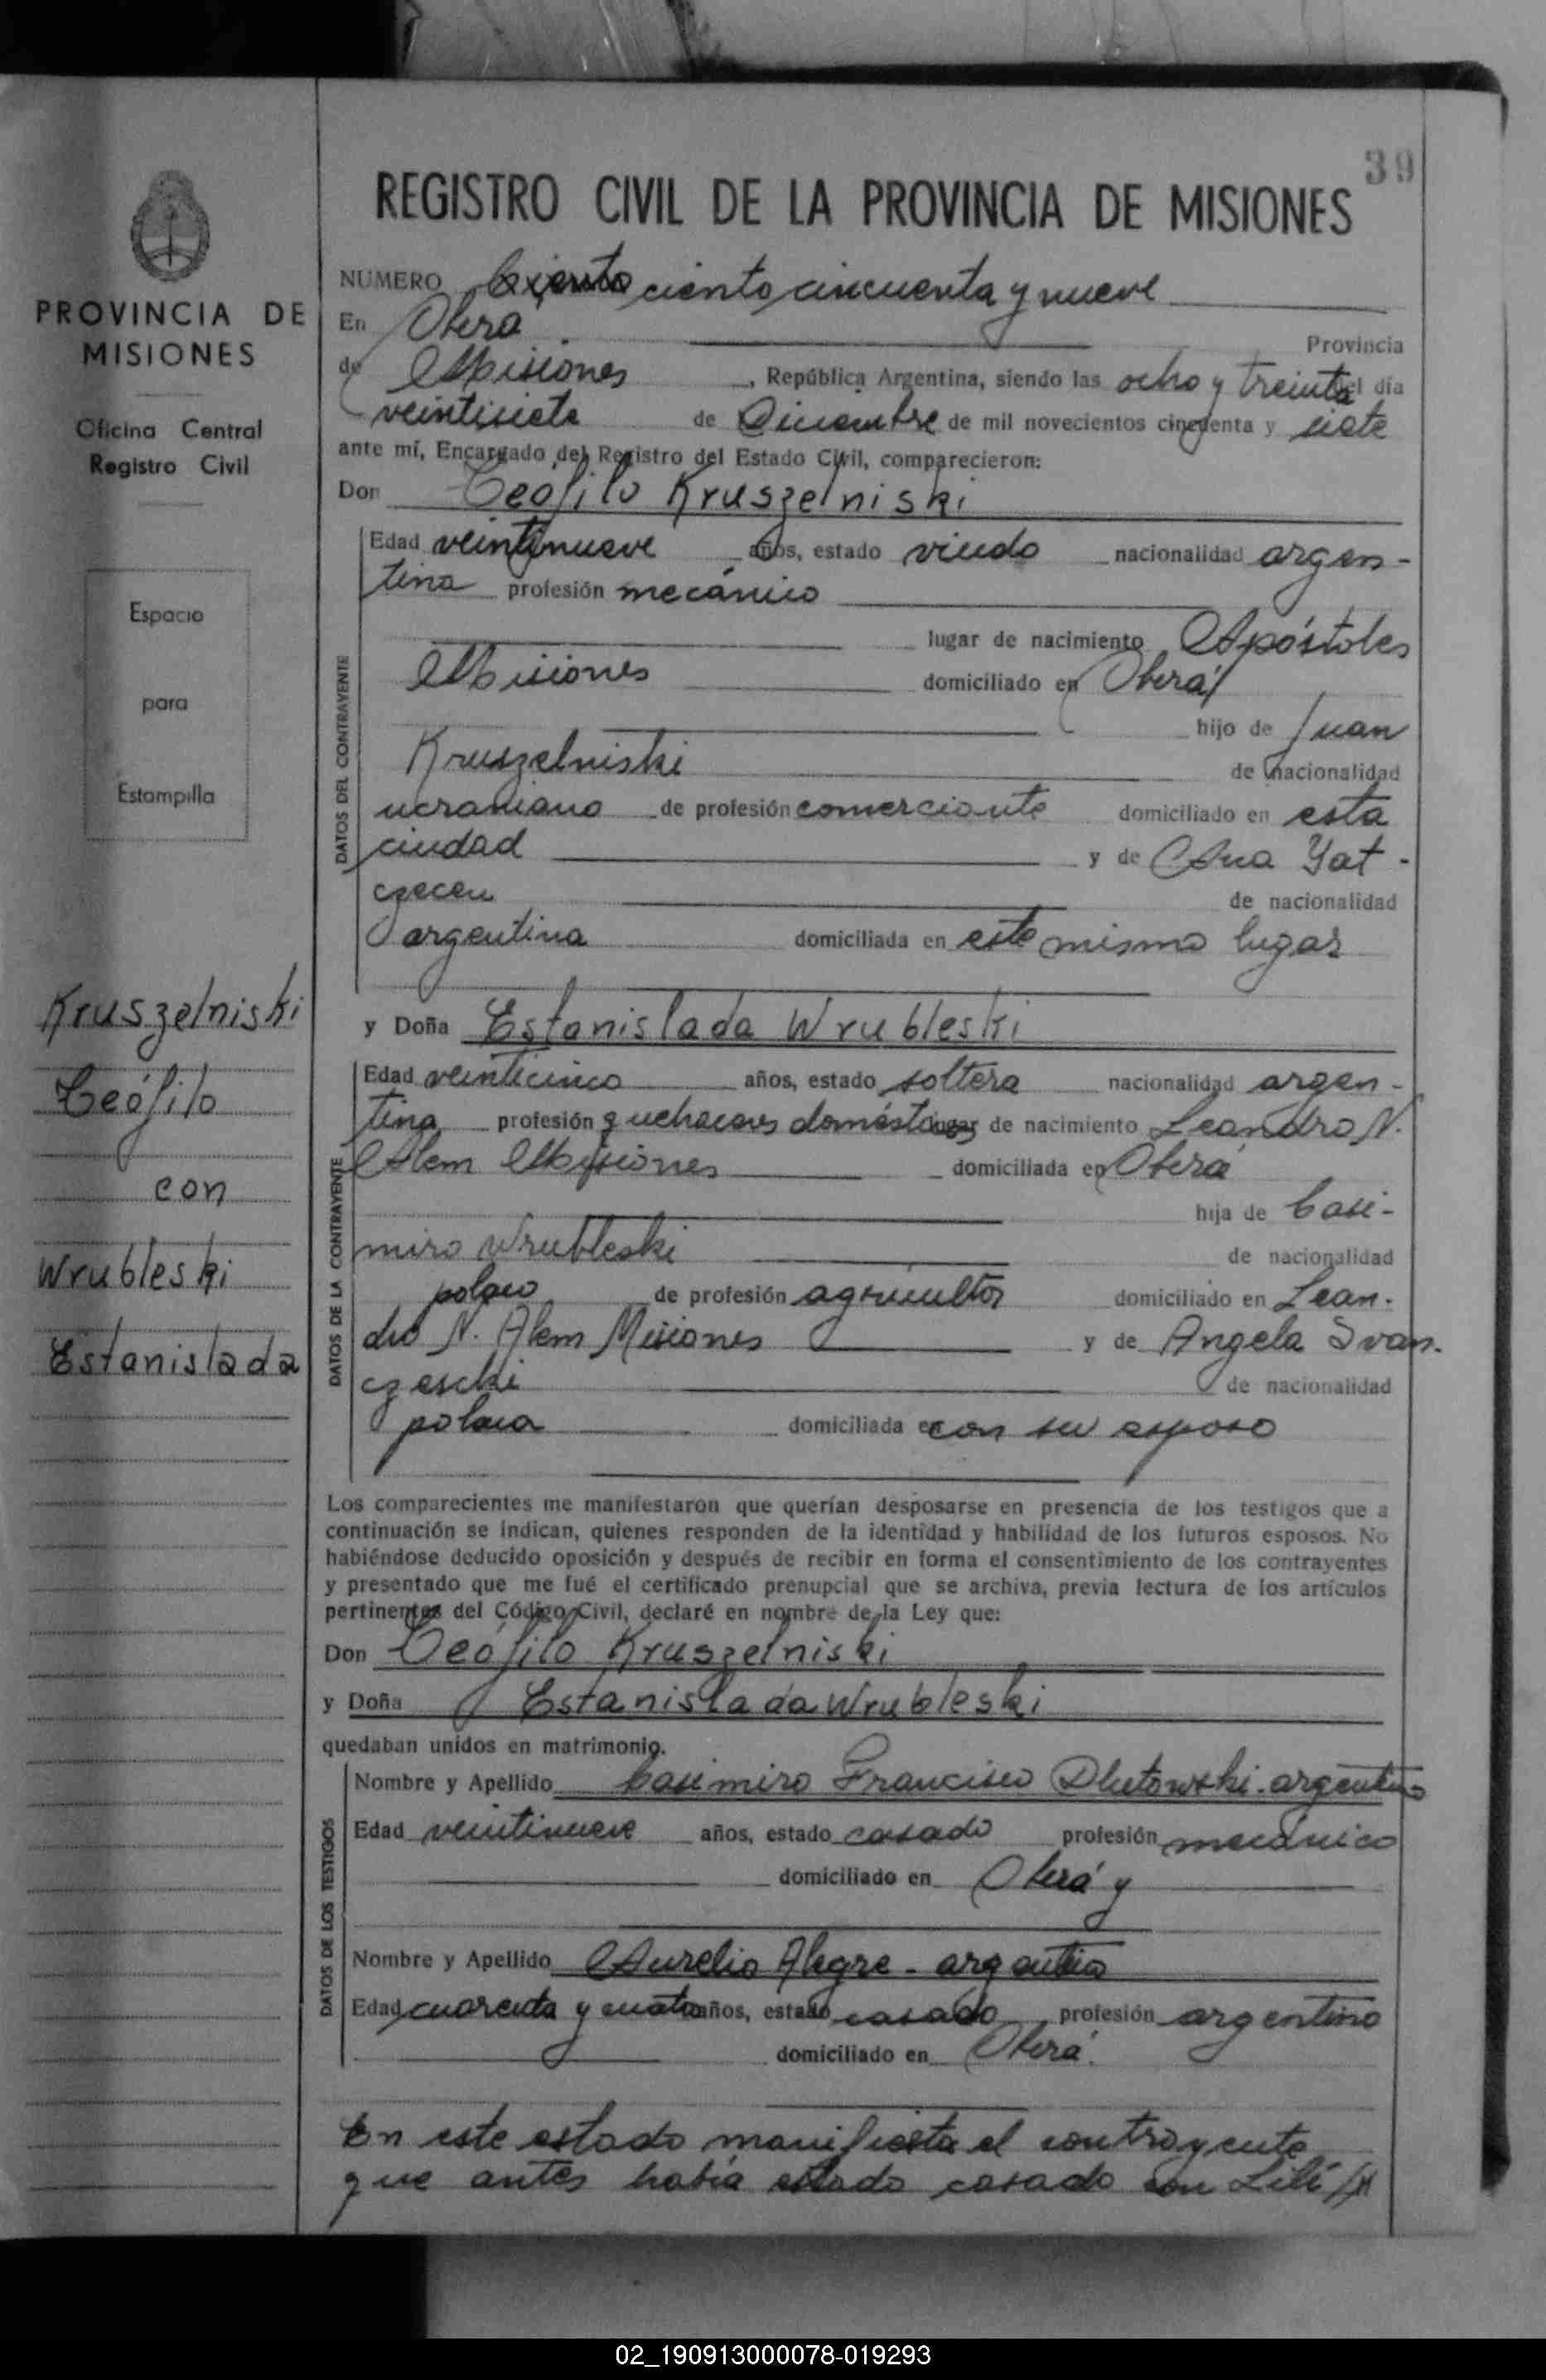 39
REGISTRO CIVIL DE LA PROVINCIA DE MISIONES
PROVINCIA DE
MISIONES
Oficina Central
Registro Civil
Espacio
para
Estampilla
Kruszelniski
Teófilo
con
Wrubleski
Estanislada
NUMERO Ciento ciento cincuenta y nueve
En Obera
Provincia
de Misiones, República Argentina, siendo las ocho y treinta del día
veintisiete de Diciembre de mil novecientos cincuenta y siete
ante mí, Encargado del Registro del Estado Civil, comparecieron:
Don Teófilo Kruszelniski
DATOS DEL CONTRAYENTE
Edad veintinueve años, estado viudo nacionalidad argen-
tina profesión mecánico
lugar de nacimiento Apóstoles
Misiones domiciliado en Oberá
hijo de Juan
Kruszelniski de nacionalidad
ucraniano de profesión comerciante domiciliado en esta
ciudad y de Ana Yat-
czecen de nacionalidad
argentina domiciliada en este mismo lugar
y Doña Estanislada Wrubleski
DATOS DE LA CONTRAYENTE
Edad veinticinco años, estado soltera nacionalidad argen-
tina profesión quehaceres domésticos lugar de nacimiento Leandro N.
Alem Misiones domiciliada en Oberá
hija de Casi-
miro Wrubleski de nacionalidad
polaco de profesión agricultor domiciliado en Lean-
dro N. Alem Misiones y de Angela Ivan-
czeschi de nacionalidad
polaca domiciliada en con su esposo
Los comparecientes me manifestaron que querían desposarse en presencia de los testigos que a
continuación se indican, quienes responden de la identidad y habilidad de los futuros esposos. No
habiéndose deducido oposición y después de recibir en forma el consentimiento de los contrayentes
y presentado que me fué el certificado prenupcial que se archiva, previa lectura de los artículos
pertinentes del Código Civil, declaré en nombre de la Ley que:
Don Teófilo Kruszelniski
y Doña Estanislada Wrubleski
quedaban unidos en matrimonio.
DATOS DE LOS TESTIGOS
Nombre y Apellido Casimiro Francisco Dlutowski - argentino
Edad veintinueve años, estado casado profesión mecánico
domiciliado en Oberá y
Nombre y Apellido Aurelio Alegre - argentino
Edad cuarenta y cuatro años, estado casado profesión argentino
domiciliado en Oberá.
En este estado manifiesta el contrayente
que antes había estado casado con Lili
02_190913000078-019293